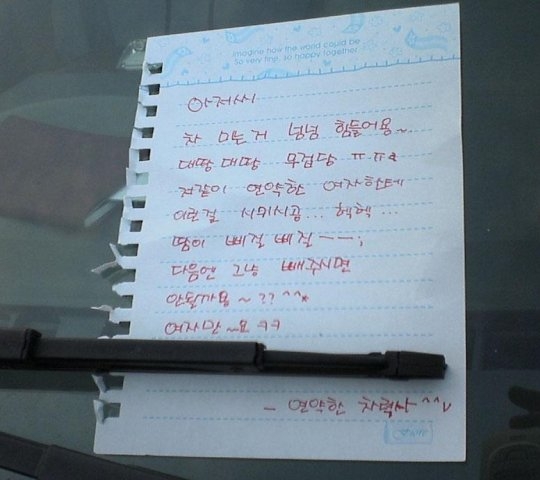 Imagine how the world could be
So very fine, so happy together
아저씨
차 미는거 넘넘 힘들어용~
대땅대땅 무겁당 ㅠ.ㅠ
저같이 연약한 여자한테
이런걸 시키시공... 헥헥...
땀이 삐질 삐질ㅡㅡ;
다음엔 그냥 빼주시면
안될까용~?? ^^*
여자만~요 ㅋㅋ
- 연약한 차력사^^v